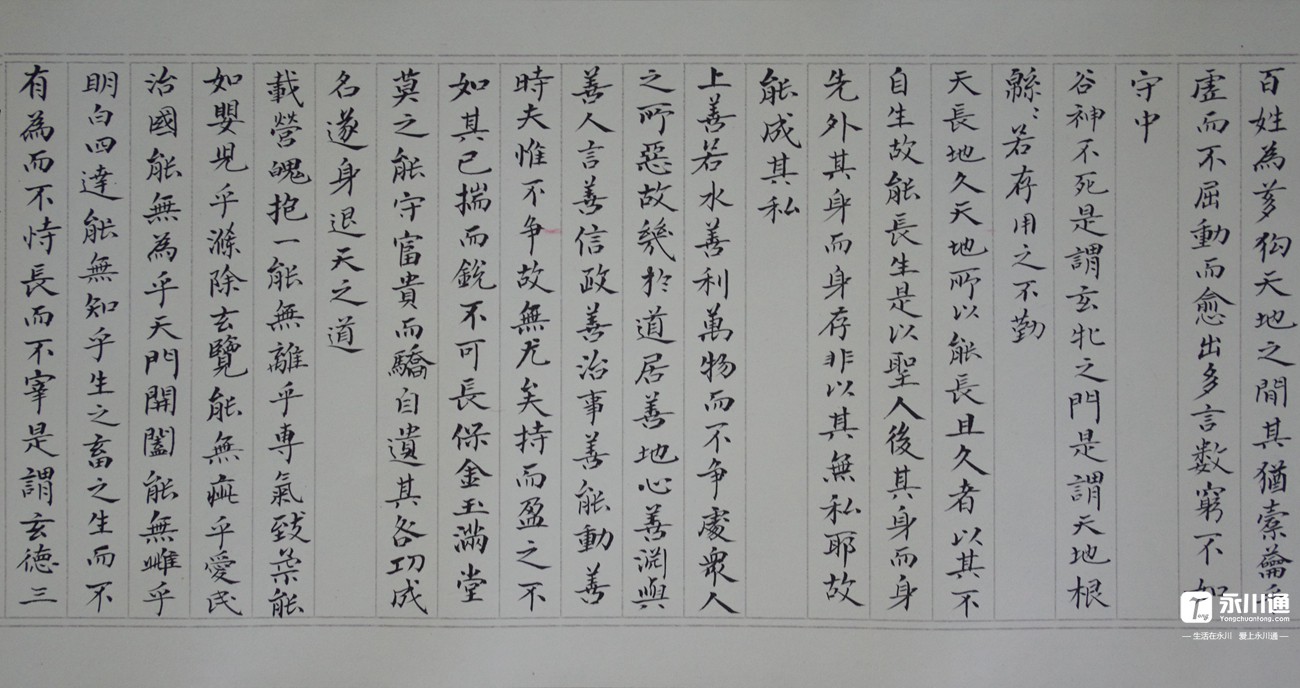 百姓為芻狗天地之間其猶橐籥乎
虛而不屈動而愈出多言數窮不如
守中
谷神不死是謂玄牝之門是謂天地根
緜〻若存用之不勤
天長地久天地所以能長且久者以其不
自生故能長生是以聖人後其身而身
先外其身而身存非以其無私耶故
能成其私
上善若水善利萬物而不争處衆人
之所惡故幾於道居善地心善淵與
善人言善信政善治事善能動善
時夫惟不争故無尤矣持而盈之不
如其已揣而銳不可長保金玉滿堂
莫之能守富貴而驕自遺其咎功成
名遂身退天之道
載營魄抱一能無離乎専氣致柔能
如嬰児乎滌除玄覽能無疵乎愛民
治國能無為乎天門開闔能無雌乎
明白四達能無知乎生之畜之生而不
有為而不恃長而不宰是謂玄德三
永川通
Tong
Yongchuantong.com
生活在永川 爱上永川通